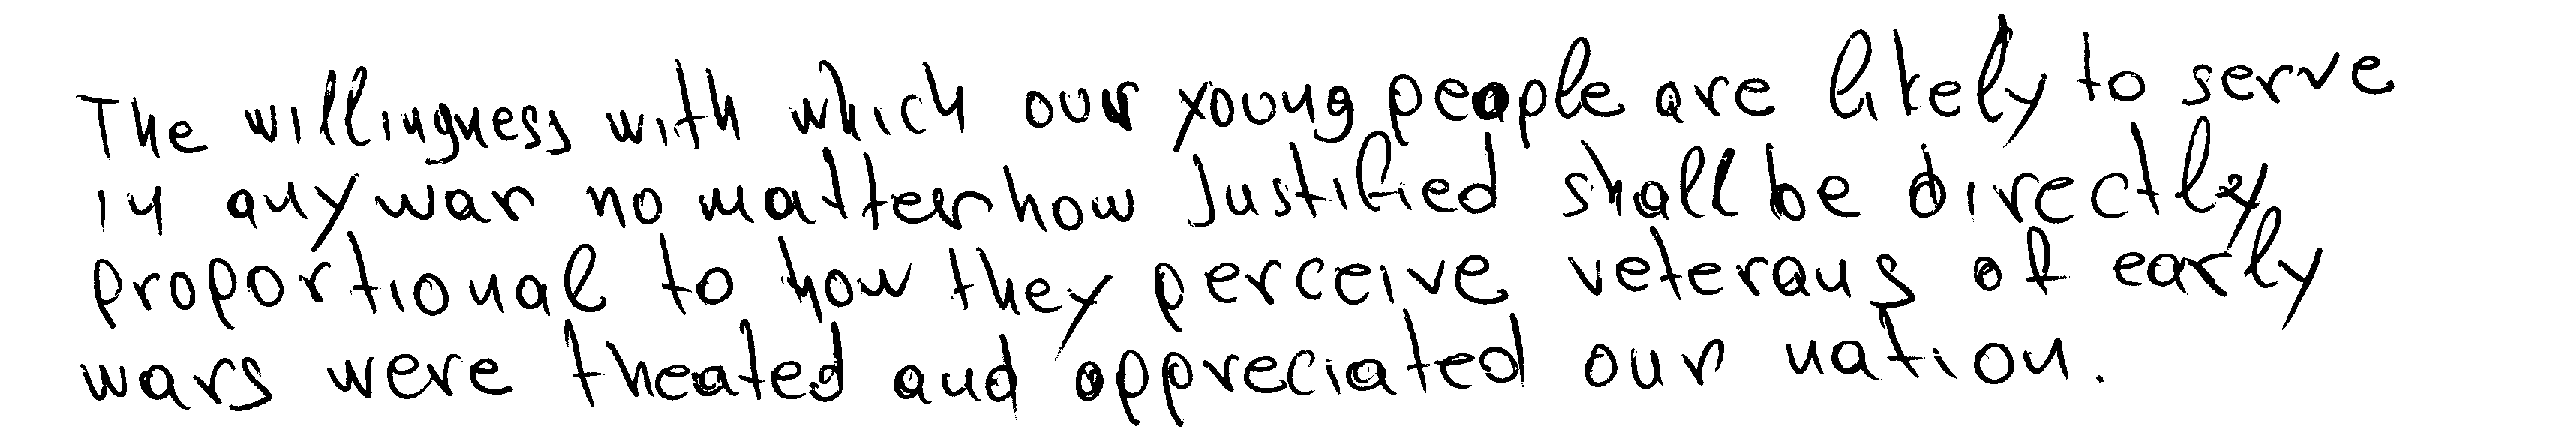 The willingness with which our young people are likely to serve
in any war no matter how Justified shall be directly
proportional to how they perceive veterans of early
wars were theated and appreciated our nation.